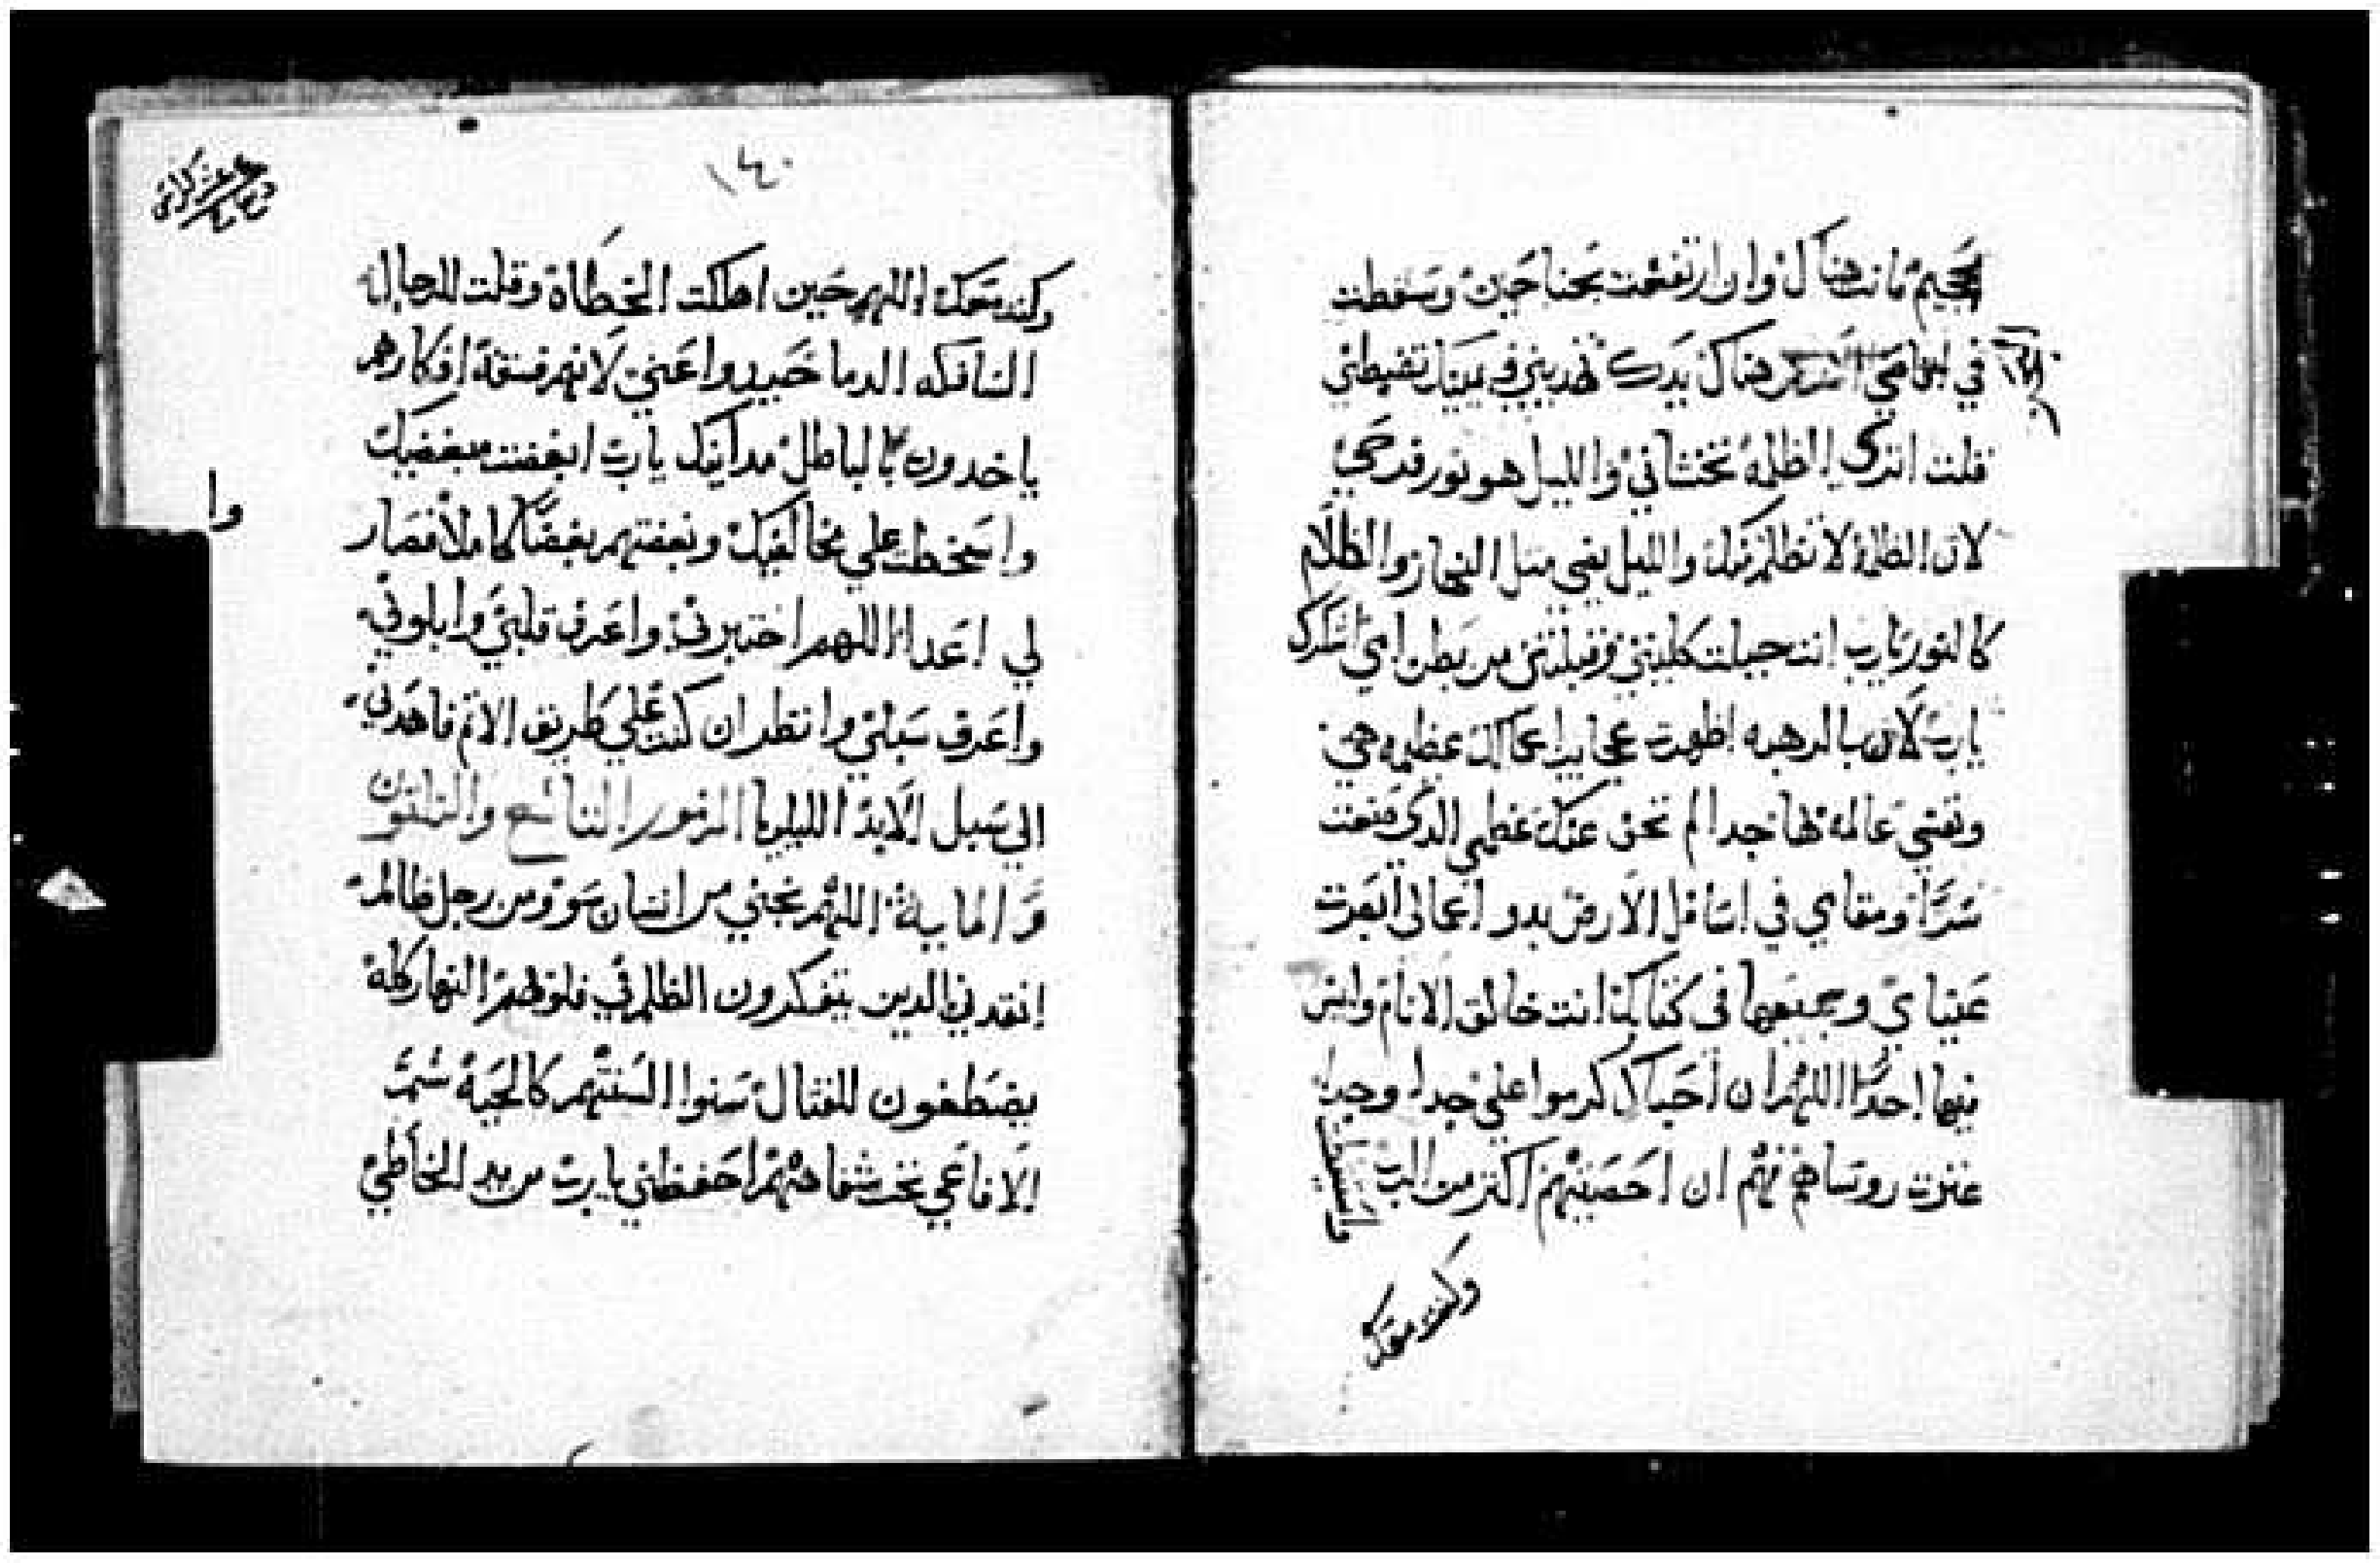 الجحيم فانت هناك وان ارتفعت بجناحين وسقطت
في اقاصي البحر هناك يدك تهديني ويمينك تضبطني
قلت اتري الظلمه تخشاني والليل هو نور قدمي
لان الظلمة لا تظلم منك والليل يضي مثل النهار والظلام
كالنور يارب انت جبلت كليتي وقبلتني من بطن امي اشكرك
يارب لان بالرهبه اظهرت عجايبا اعمالك عظيمه هي
ونفسي عالمه بها جدا لم تخف عنك عظمي الدي صنعت
سرا ومقامي في اسافل الارض بدو اعمالي ابصرت
عيناي وجميعها في كتابك انت خالق الانام وليس
فيها احدا اللهم ان احباك كرموا علي جدا وجدا
عزت روساهم فهم ان احصيتهم اكتر من الب
فاستيقظت
وكنت معك
١٤٠
وكنت معك اللهم حين اهلكت الخطاة وقلت للرجال
السافكه الدما حيدوا عني لانهم فسقة افكارهم
ياخدون بالباطل مداينك يارب ابغضت مبغضيك
واسخطت علي مخالفيك وبغضتهم بغضا كاملا فصار
لي اعدا اللهم اختبرني واعرف قلبي وابلوني
واعرف سبلي وانظر ان كنت علي طريق الاتم فاهدني
الي سبيل الابد الليلويا المزمور التاسع والتلتون
والمايه اللهم نجني من انسان سوو ومن رجل ظالم
انقدني الدين يتفكرون الظلم في قلوبهم النهار كله
يصطفون للقتال سنوا السنتهم كالحية سم
الافاعي تحت شفاههم احفظني يارب من يد الخاطي
وا